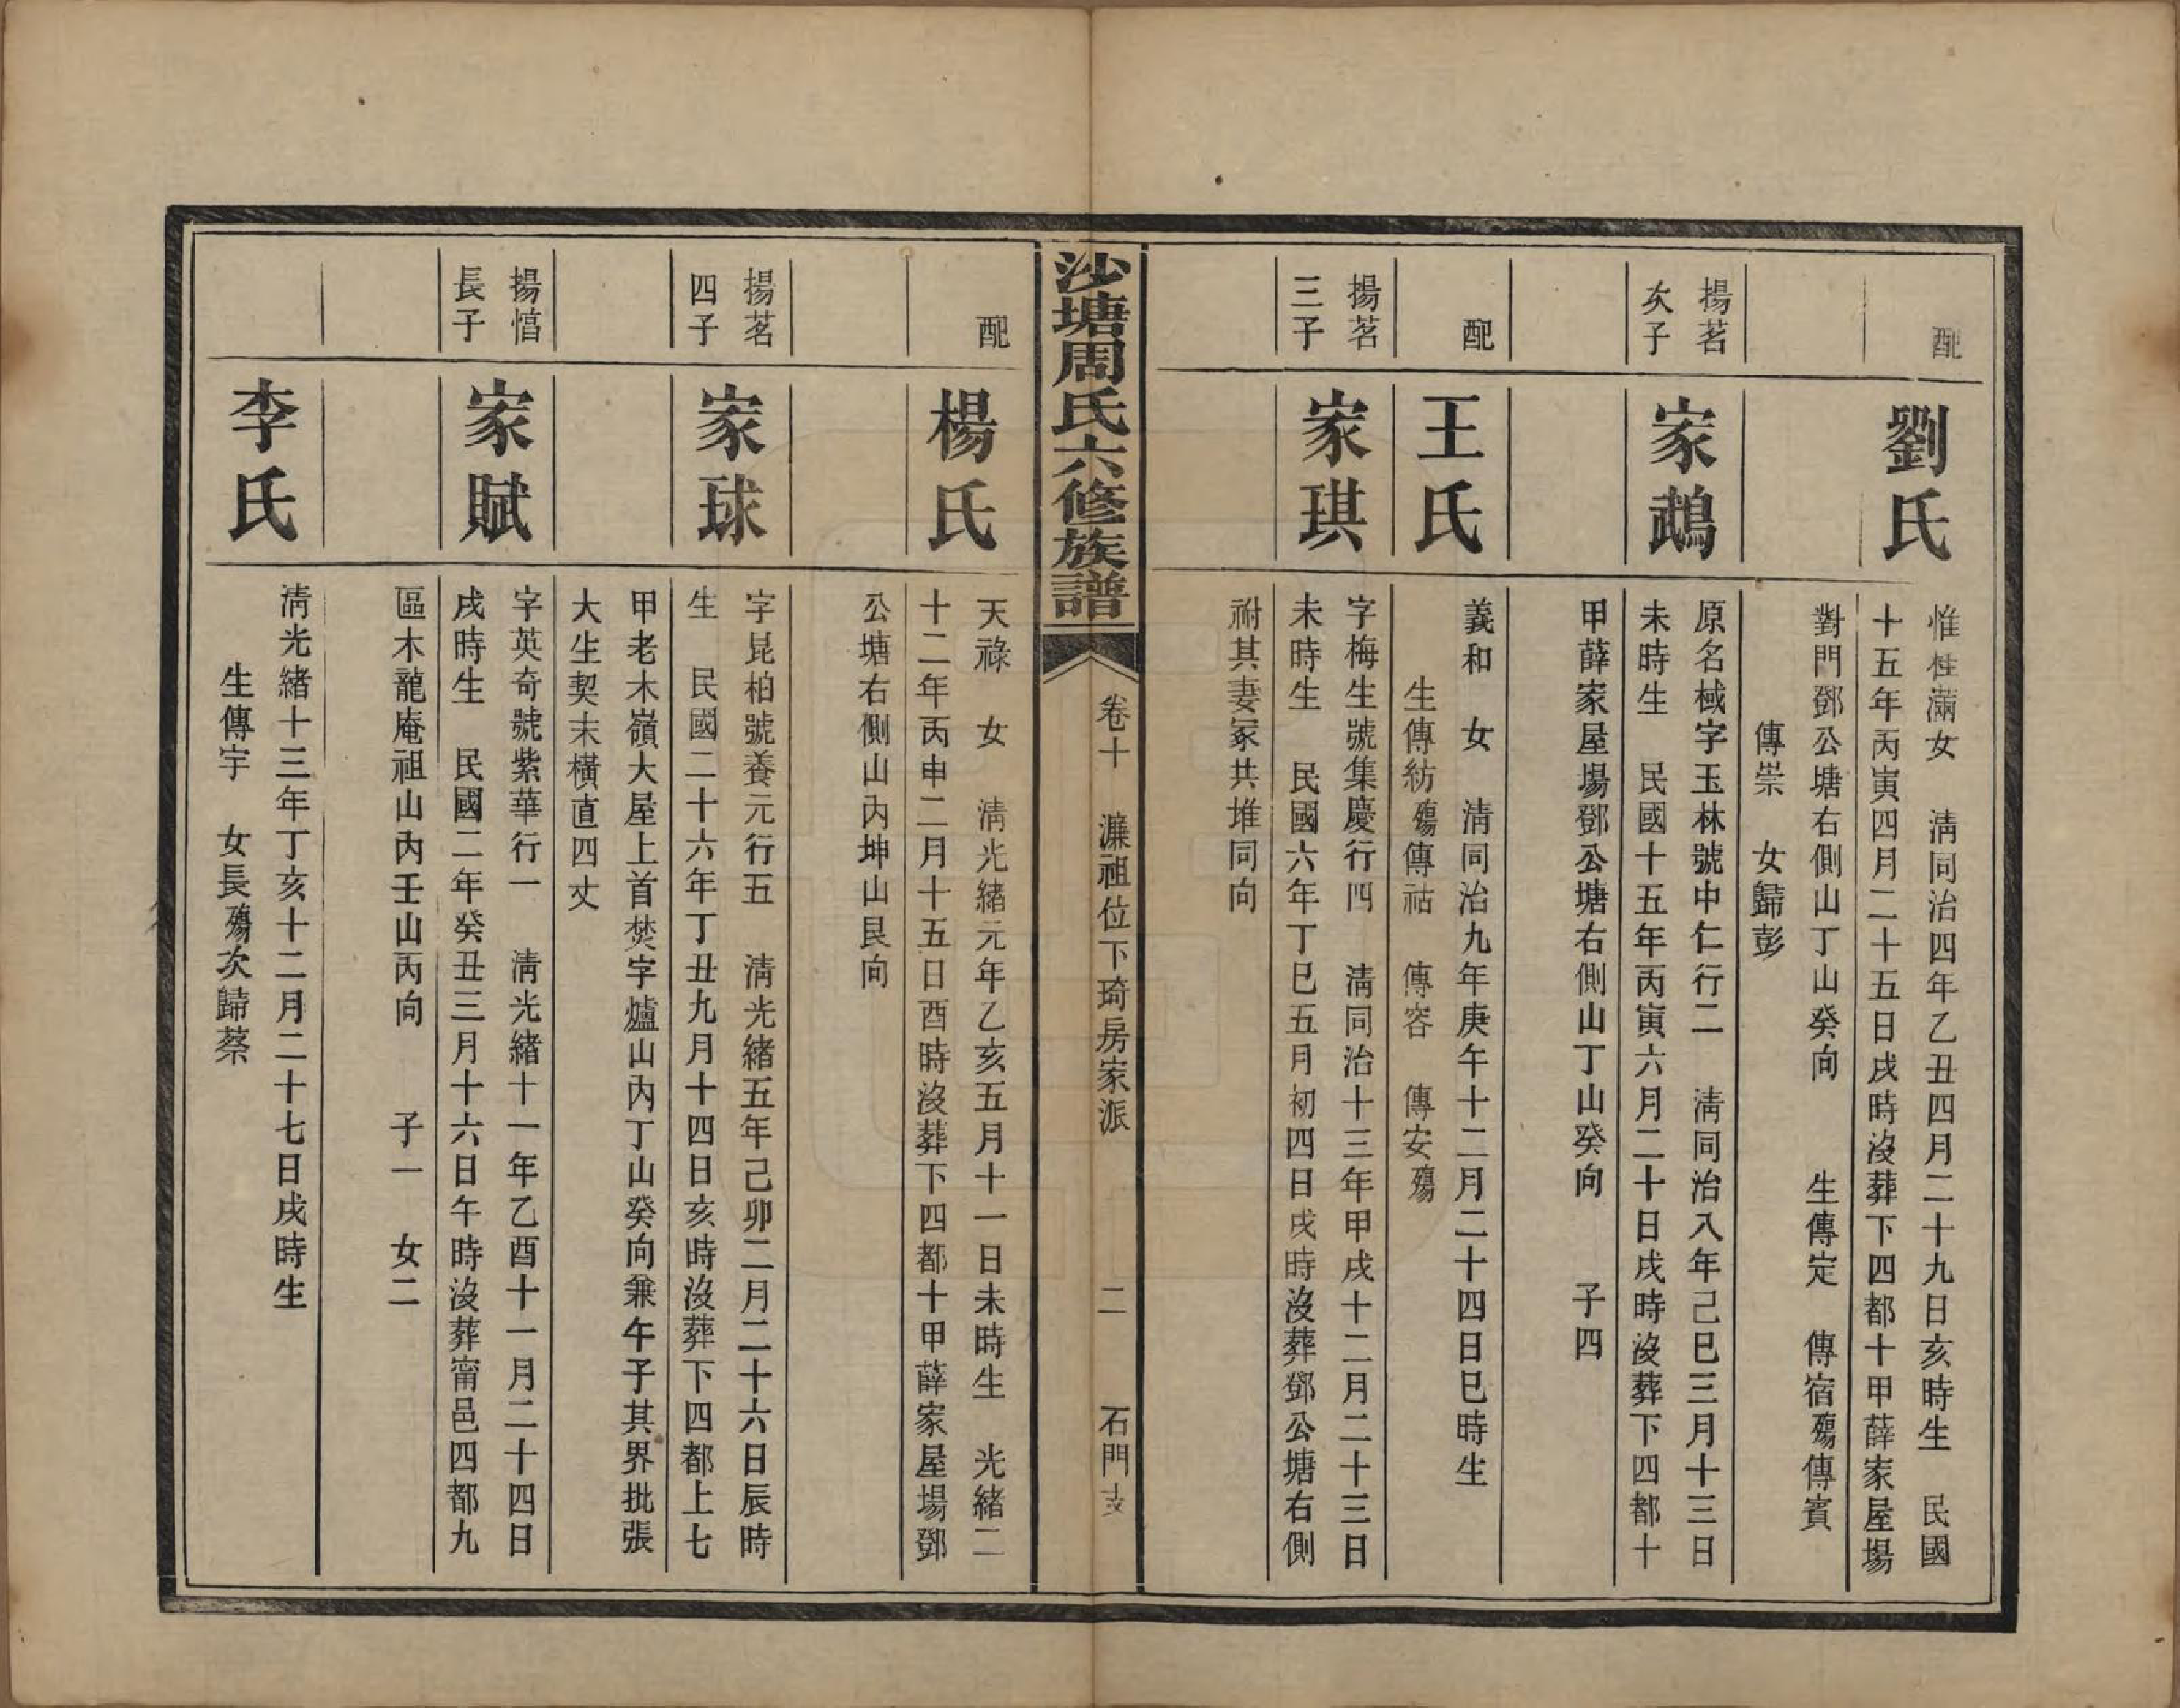 配
劉氏
惟桂滿女　清同治四年乙丑四月二十九日亥時生　民國
十五年丙寅四月二十五日戌時沒葬下四都十甲薛家屋場
對門鄧公塘右側山丁山癸向　　生傳定　傳宿殤傳賓
傳崇　女歸彭
揚茗
次子
家鵡
原名棫字玉林號中仁行二　清同治八年己巳三月十三日
未時生　民國十五年丙寅六月二十日戌時沒葬下四都十
甲薛家屋場鄧公塘右側山丁山癸向　　子四
配
王氏
義和　女　清同治九年庚午十二月二十四日巳時生
生傳紡殤傳祜　傳容　傳安殤
揚茗
三子
家琪
字梅生號集慶行四　清同治十三年甲戌十二月二十三日
未時生　民國六年丁巳五月初四日戌時沒葬鄧公塘右側
祔其妻冢共堆同向
沙塘周氏六修族譜
卷十　濂祖位下琦房家派　　二　石門支
配
楊氏
天祿　女　清光緒元年乙亥五月十一日未時生　光緒二
十二年丙申二月十五日酉時沒葬下四都十甲薛家屋場鄧
公塘右側山內坤山艮向
揚茗
四子
家球
字昆柏號養元行五　清光緒五年己卯二月二十六日辰時
生　民國二十六年丁丑九月十四日亥時沒葬下四都上七
甲老木嶺大屋上首焚字爐山內丁山癸向兼午子其界批張
大生契未橫直四丈
揚愭
長子
家賦
字英奇號紫華行一　清光緒十一年乙酉十一月二十四日
戌時生　民國二年癸丑三月十六日午時沒葬甯邑四都九
區木龍庵祖山內壬山丙向　　子一　女二
李氏
清光緒十三年丁亥十二月二十七日戌時生
生傳宇　女長殤次歸蔡